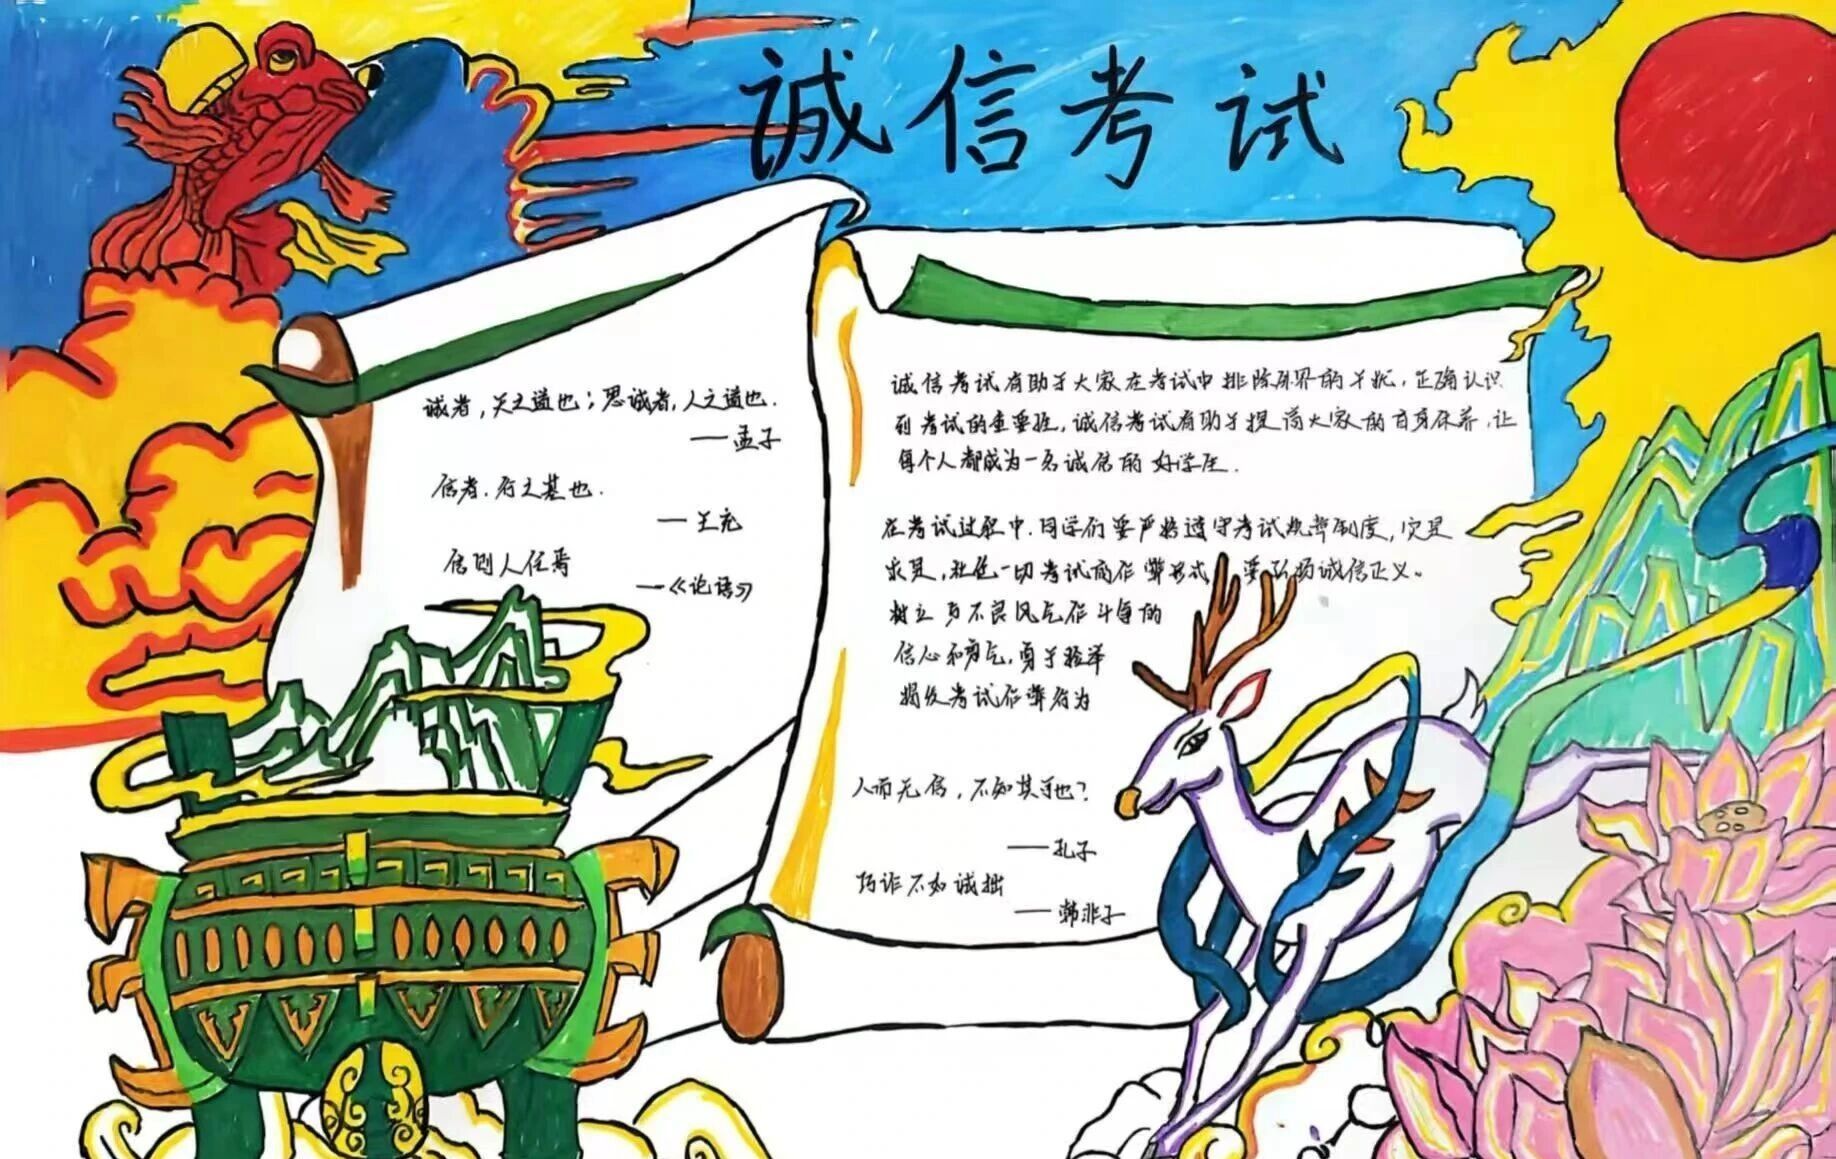 诚信考试
诚者，天之道也；思诚者，人之道也．
——孟子
信者．行之基也．
——王充
信则人任焉
——《论语》
诚信考试有助于大家在考试中排除外界的干扰，正确认识
到考试的重要性，诚信考试有助于提高大家的自身保养，让
每个人都成为一名诚信的好学生．
在考试过程中．同学们要严格遵守考试规章制度，实是
求是，杜绝一切考试的作弊形式，要弘扬诚信正义。
树立与不良风气作斗争的
信心和勇气，勇于检举
揭发考试作弊行为
人而无信，不知其可也？
——孔子
巧诈不如诚拙
——韩非子